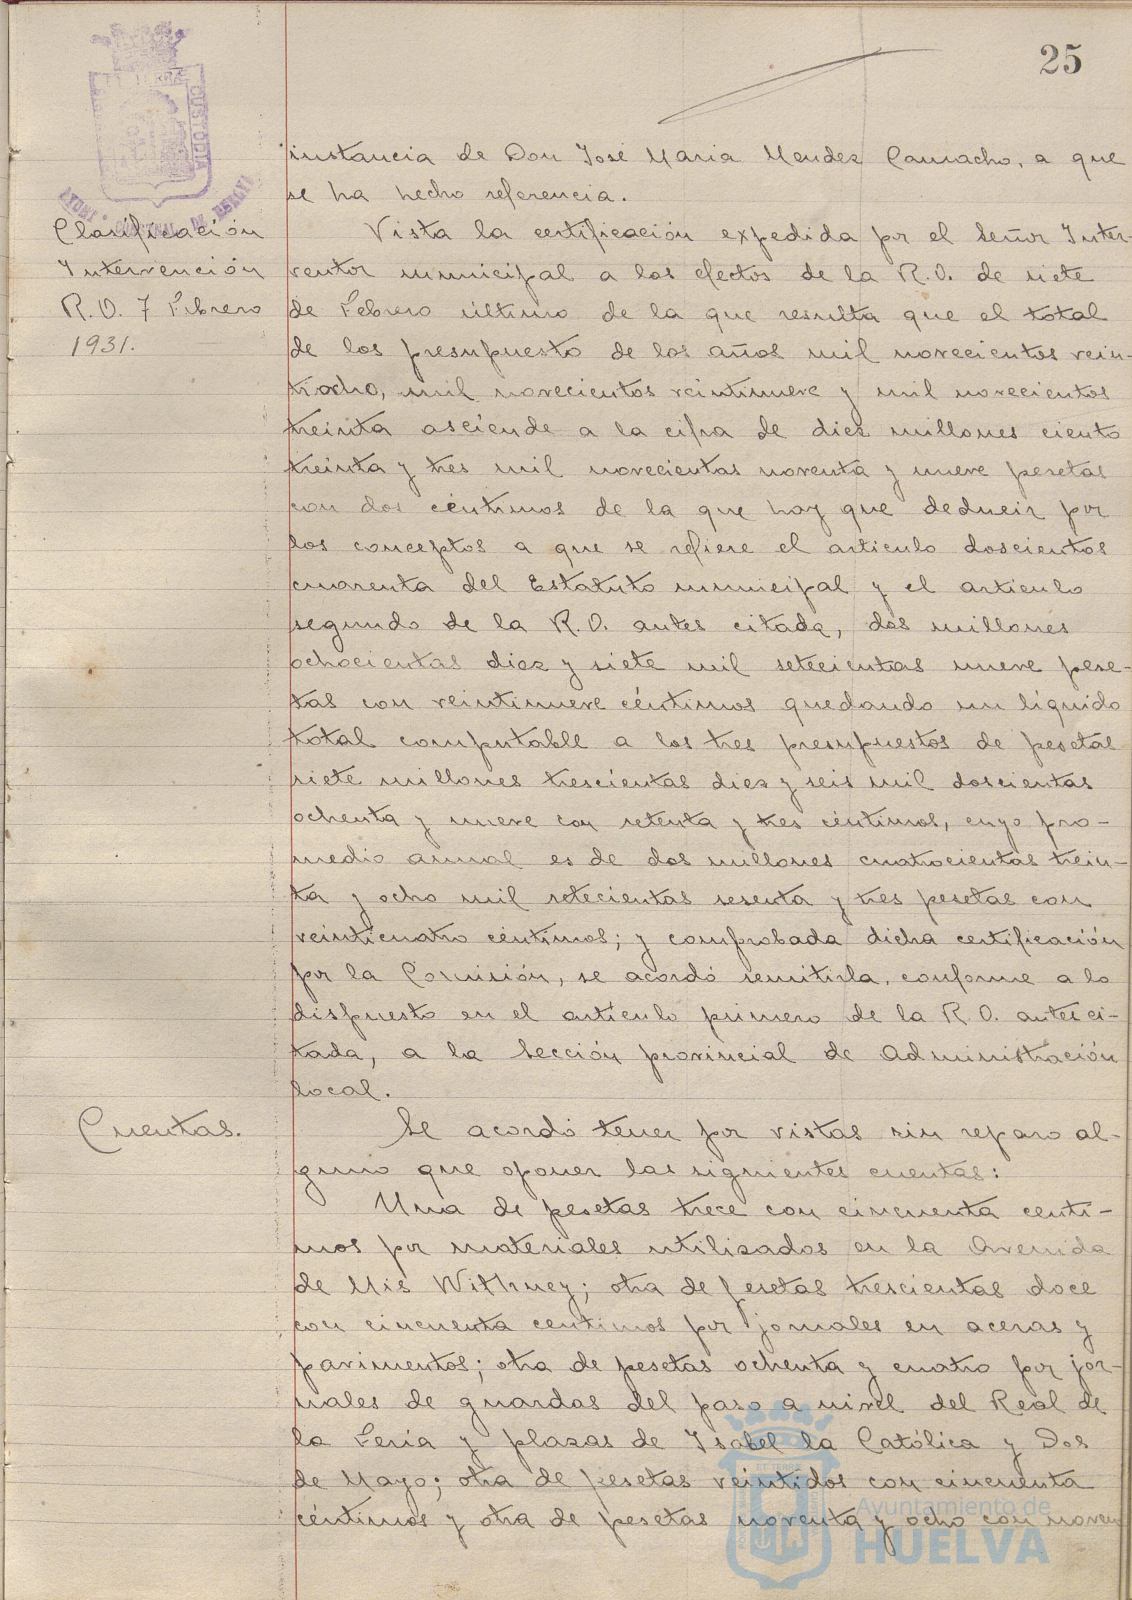 25
instancia de Don José Maria Mendez Camacho, a que
se ha hecho referencia.
Clasificación
Intervención
R.O. 7 Febrero
1931.
Vista la certificación expedida por el Señor Inter-
ventor municipal a los efectos de la R.O. de siete
de Febrero último de la que resulta que el total
de los presupuesto de los años mil novecientos vein-
tiocho, mil novecientos veintinueve y mil novecientos
treinta asciende a la cifra de diez millones ciento
treinta y tres mil novecientas noventa y nueve pesetas
con dos céntimos de la que hay que deducir por
los conceptos a que se refiere el articulo doscientos
cuarenta del Estatuto municipal y el articulo
segundo de la R.O. antes citada, dos millones
ochocientas diez y siete mil setecientas nueve pese-
tas con veintinueve céntimos quedando un líquido
total computable a los tres presupuestos de pesetas
siete millones trescientas diez y seis mil doscientas
ochenta y nueve con setenta y tres céntimos, cuyo pro-
medio annal es de dos millones cuatrocientas trein-
ta y ocho mil setecientas sesenta y tres pesetas con
veinticuatro céntimos; y comprobada dicha certificación
por la Comisión, se acordó remitirla, conforme a lo
dispuesto en el artículo primero de la R.O. anteci-
tada, a la Sección provincial de Administración
local.
Cuentas.
Se acordó tener por vistas sin reparo al-
guno que oponer las siguientes cuentas:
Una de pesetas trece con cincuenta centi-
mos por materiales utilizados en la Avenida
de Mis Withney; otra de pesetas trescientas doce
con cincuenta centimos por jornales en aceras y
pavimentos; otra de pesetas ochenta y cuatro por jor-
nales de guardas del paso a nivel del Real de
la Feria y plazas de Isabel la Católica y Dos
de Mayo; otra de pesetas veintidos con cincuenta
céntimos y otra de pesetas noventa y ocho con noven
Ayuntamiento de
HUELVA